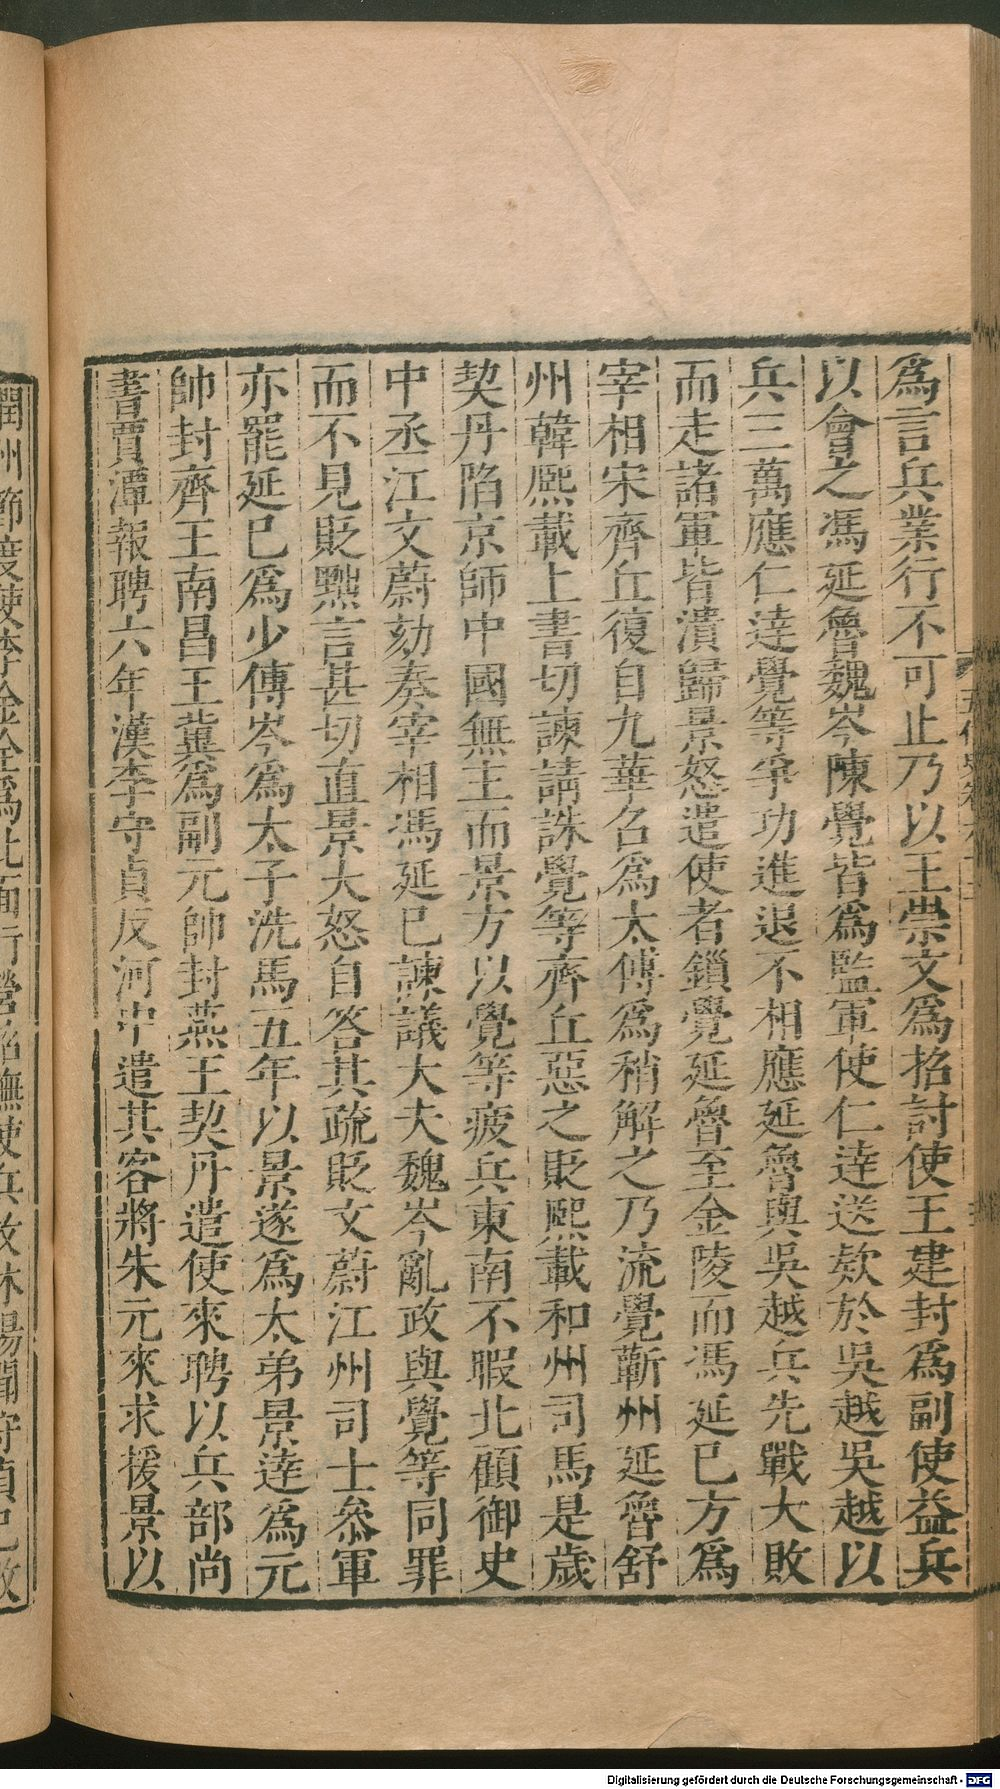 爲言兵業行不可止乃以王崇文爲招討使王建封爲副使益兵
以會之馮延魯魏岑陳覺皆爲監軍使仁達送欵於吳越吳越以
兵三萬應仁達覺等爭功進退不相應延魯與吳越兵先戰大敗
而走諸軍皆潰歸景怒遣使者鎖覺延魯至金陵而馮延巳方爲
宰相宋齊丘復自九華召爲太傅爲稍解之乃流覺蘄州延魯舒
州韓熙載上書切諫請誅覺等齊丘惡之貶熙載和州司馬是歲
契丹陷京師中國無主而景方以覺等疲兵東南不暇北顧御史
中丞江文蔚劾奏宰相馮延巳諫議大夫魏岑亂政與覺等同罪
而不見貶黜言甚切直景大怒自答其疏貶文蔚江州司士叅軍
亦罷延巳爲少傅岑爲太子洗馬五年以景遂爲太弟景達爲元
帥封齊王南昌王冀爲副元帥封燕王契丹遣使來聘以兵部尚
書賈潭報聘六年漢李守貞反河中遣其客將朱元來求援景以
潤州節度使李金全爲北面行營招撫使兵攻沭陽聞守貞已敗
五代史卷六十二
Digitalisierung gefördert durch die Deutsche Forschungsgemeinschaft - DFG